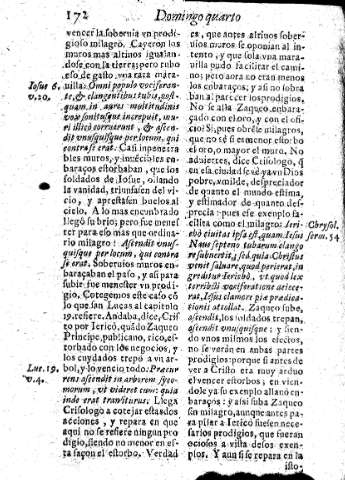 172
Domingo quarto
vencer la sobervia vn prodi-
gioso milagro. Cayeron los
muros mas altivos igualan-
dose con la tierra; pero hubo
eso de gasto, vna rara mara-
villa: Omni populo vociferan-
te, & clangentibus tubis, post-
quam in aures multitudinis
vox sonitusque increpuit, mu-
ri illicò corruerunt, & ascen-
dit vnusquisque per locum, qui
contra se erat. Casi inpenetra-
bles muros, y invecibles em-
baraços estorbaban, que los
soldados de Iosue, olando
la vanidad, triunfasen del vi-
cio, y aprestasen buelos al
cielo. A lo mas encumbrado
llegò su brio; pero fue menes-
ter para eso mas que ordina-
rio milagro: Ascendit vnus-
quisque per locum, qui contra
se erat. Sobervios muros em-
baraçaban el paso, y asi para
subir fue menester vn prodi-
gio. Cotegemos este caso cõ
lo que san Lucas al capitulo
19. refiere. Andaba, dice, Cris-
to por Iericò, quãdo Zaqueo
Principe, publicano, rico, es-
torbado con los negocios, y
los cuydados trepò a vn ar-
bol, y lo venciò todo: Præcur-
rens ascendit in arborem syco-
morum, vt videret eum: quia
inde erat transiturus. Llega
Crisologo a cotejar estas dos
acciones, y repara en que
aqui no se refiere ningun pro-
digio, siendo no menor en es-
ta sazon el estorbo. Verdad
Iosue 6.
v. 20.
Luc. 19.
v. 4.
es, que antes altivos sober-
vios muros se oponian al in-
tento, y que sola vna mara-
villa pudo facilitar el cami-
no; pero aora no eran menos
los embaraços; y asi no sobra
ban al parecer los prodigios.
No se alla Zaqueo embara-
çado con el oro, y con el ofi-
cio? Si, pues obrese milagros,
que no sè si es menor estorbo
el oro, o mayor el muro. No
adviertes, dice Crisologo, q̃
en esa ciudad se dè ya vn Dios
pobre, vmilde, despreciador
de quanto el mundo estima,
y estimador de quanto des-
precia: pues ese exemplo fa-
cilita como el milagro: Ieri-
chò civitas ipsa est, quam Iesus
Nave septeno tubarum clango
re subvertit; sed quia Christus
venit salvare, quod perierat, in
greditur Ierichò, vt quod lex
terribili vociferatione deiece-
rat, Iesus clamore piæ prædica-
tionis attollat. Zaqueo sube,
ascendit, los soldados trepan,
ascendit vnusquisque: y sien-
do vnos mismos los efectos,
no se veràn en ambas partes
prodigios: porque si antes de
ver a Cristo era muy arduo
el vencer estorbos; en vien-
dole ya su exemplo allanò en-
baraços; y asi suba Zaqueo
sin milagro, aunque antes pa-
ra pisar a Iericò fuesen neces-
sarios prodigios, que fueran
ociosos a vista de los exem-
plos. Y aun si se repara en la
Chrysol.
serm. 54
isto: